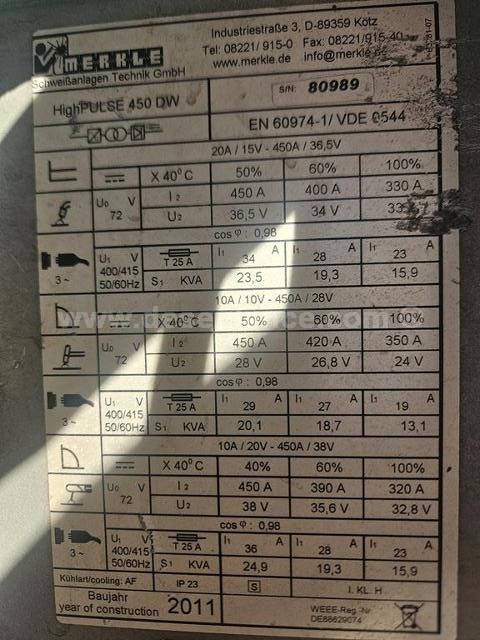 MERKLE
Schweißanlagen Technik GmbH
Industriestraße 3, D-89359 Kötz
Tel: 08221/ 915-0 Fax: 08221/915-40
www.merkle.de info@merkle.de
HighPULSE 450 DW
S/N: 80989
EN 60974-1/ VDE 0544
20A / 15V - 450A / 36,5V
X 40°C 50% 60% 100%
U0 V 72
I2 450 A 400 A 330 A
U2 36,5 V 34 V
cos φ : 0,98
3~ U1 V 400/415 50/60Hz
T 25 A I1 34 A I1 28 A I1 23 A
S1 KVA 23,5 19,3 15,9
10A / 10V - 450A / 28V
X 40°C 50% 60% 100%
U0 V 72
I2 450 A 420 A 350 A
U2 28 V 26,8 V 24 V
cos φ : 0,98
3~ U1 V 400/415 50/60Hz
T 25 A I1 29 A I1 27 A I1 19 A
S1 KVA 20,1 18,7 13,1
10A / 20V - 450A / 38V
X 40°C 40% 60% 100%
U0 V 72
I2 450 A 390 A 320 A
U2 38 V 35,6 V 32,8 V
cos φ : 0,98
3~ U1 V 400/415 50/60Hz
T 25 A I1 36 A I1 28 A I1 23 A
S1 KVA 24,9 19,3 15,9
Kühlart/cooling: AF IP 23 S I. KL. H
Baujahr
year of construction 2011
WEEE-Reg.-Nr.
DE88629074